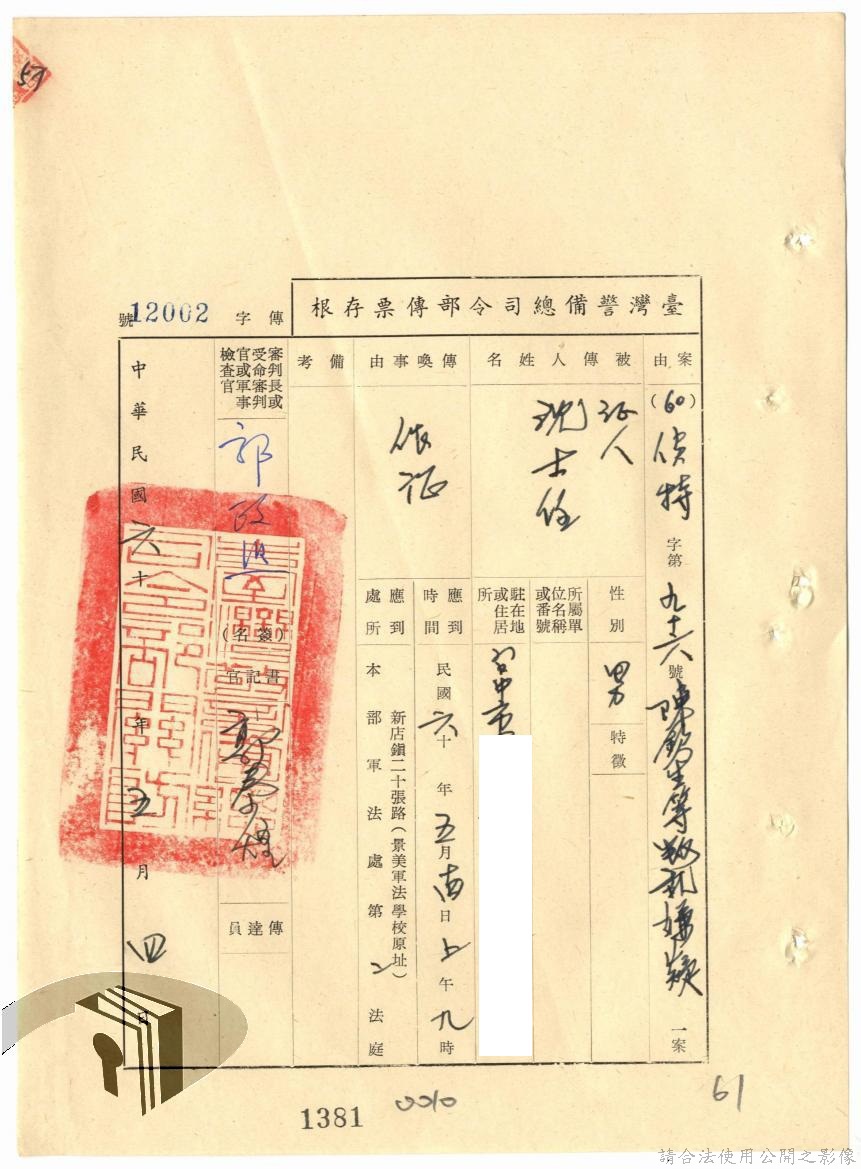 臺灣警備總司令部傳票存根
傳字
12002號
案由
(60)偵特字第九十六號
等叛亂嫌疑一案
被傳人姓名
证人
沈士任
性別
男
特徵
所屬單位名稱或番號
駐在地或住居所
台中市
傳喚事由
依证
應到時間
民國六十年五月
日上午九時
應到處所
本部軍法處第二法庭
新店鎮二十張路(景美軍法學校原址)
備考
審判長或受命審判官或軍事檢查官
郭政熙
(簽名)
書記官
傳達員
中華民國六十年五月四日
1381
0010
61
請合法使用公開之影像